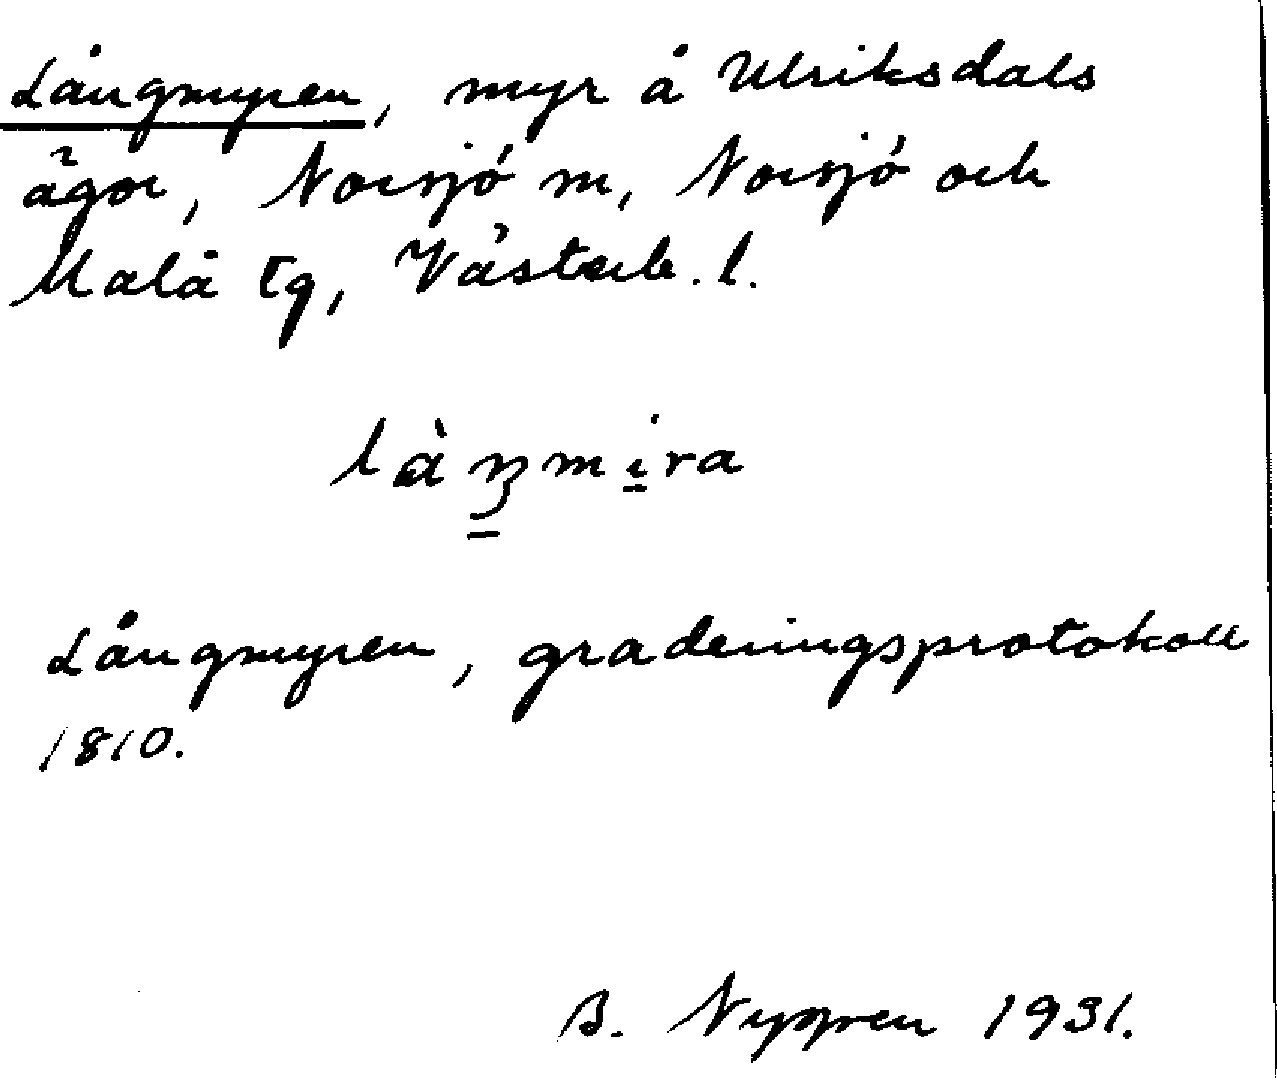 Långmyren, myr å Ulriksdals
ägor, Norsjö sn, Norsjö och
Malå tg, Västerb. l.
Långmyren, graderingsprotokoll
1810.
B. Nygren 1931.